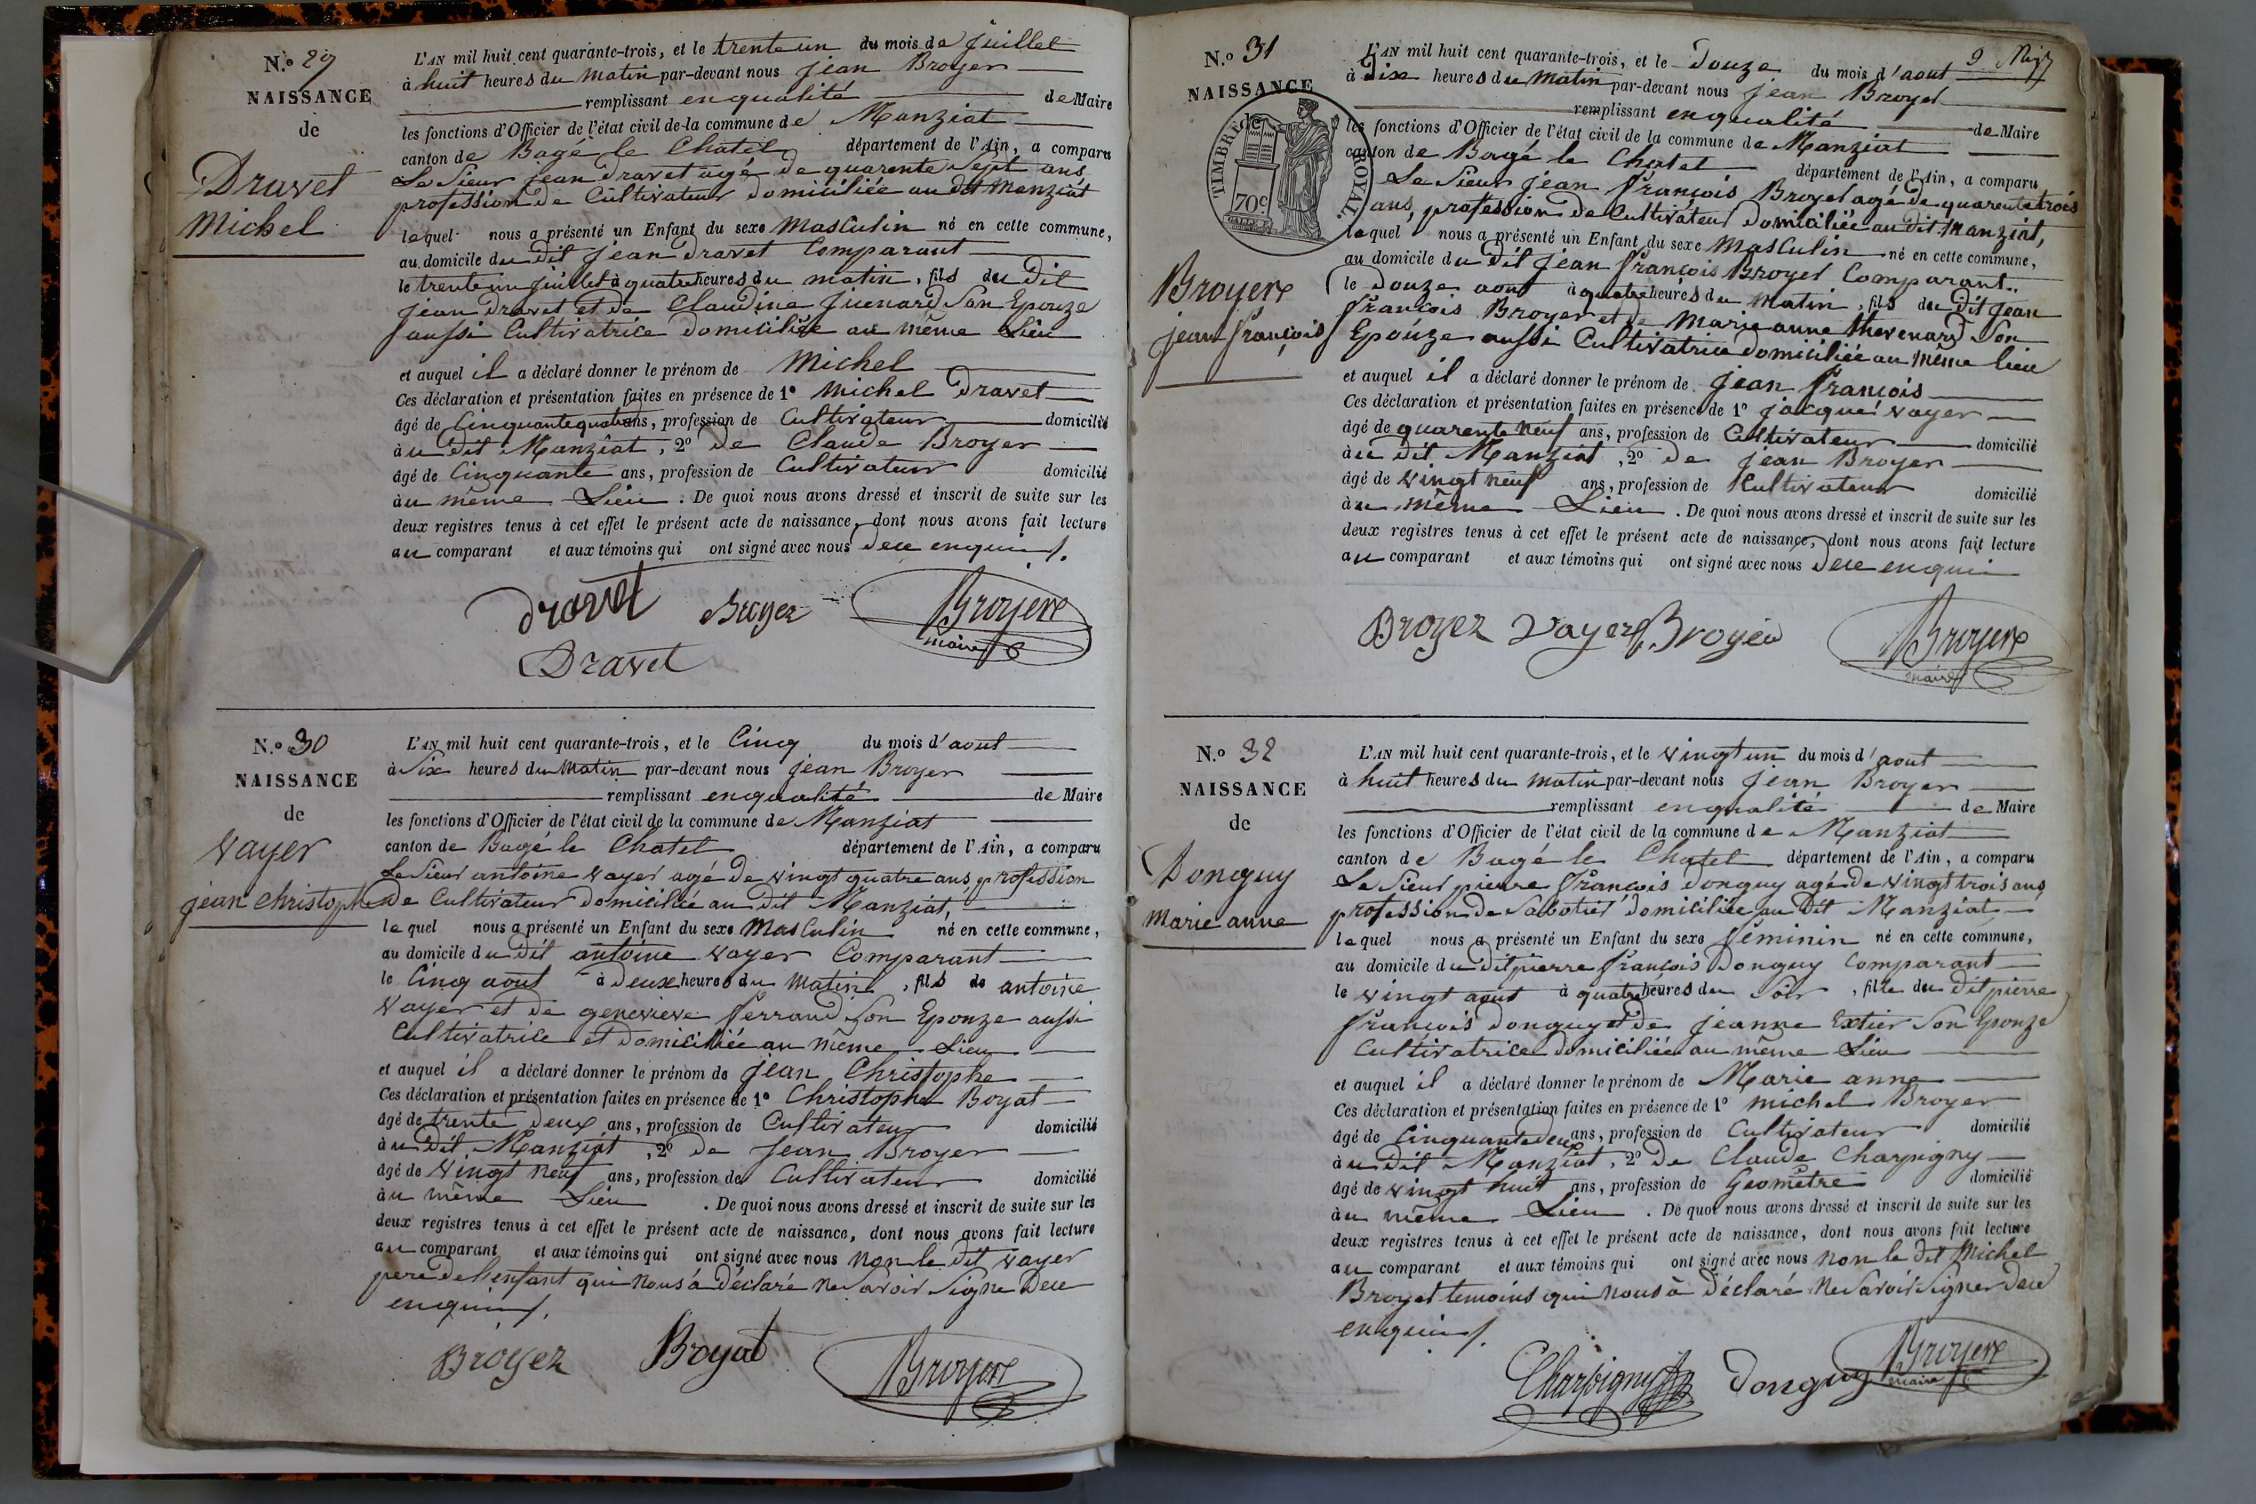 N.º 29
NAISSANCE
de
Dravet
Michel
L'AN mil huit cent quarante-trois, et le trente un du mois de juillet
à huit heures du matin par-devant nous jean Broyer
remplissant enqualité de Maire
les fonctions d'Officier de l'état civil de la commune de Manziat
canton de Bagé le Chatel département de l'Ain, a comparu
Le Sieur jean Dravet agé de quarente Sept ans
profession de Cultivateur domiciliée au dit Manziat
lequel nous a présenté un Enfant du sexe Masculin né en cette commune,
au domicile du dit jean Dravet Comparant
le trente un juillet à quatre heures du matin, fils du dit
jean Dravet et de Claudine juenard Son Epouze
aussi Cultivatrice domiciliée au même Lieu
et auquel il a déclaré donner le prénom de Michel
Ces déclaration et présentation faites en présence de 1º Michel Dravet
âgé de Cinquante quatre ans, profession de Cultivateur domicilié
à u dit Manziat, 2º de Claude Broyer
âgé de Cinquante ans, profession de Cultivateur domicilié
à u même Lieu. De quoi nous avons dressé et inscrit de suite sur les
deux registres tenus à cet effet le présent acte de naissance, dont nous avons fait lecture
au comparant et aux témoins qui ont signé avec nous dece enquis
Dravet Broyer Broyer
maire
Dravet
N.º 30
NAISSANCE
de
Vayer
jean Christophe
L'AN mil huit cent quarante-trois, et le Cinq du mois d'aout
à Six heures du Matin par-devant nous jean Broyer
remplissant enqualité de Maire
les fonctions d'Officier de l'état civil de la commune de Manziat
canton de Bagé le Chatel département de l'Ain, a comparu
Le Sieur antoine Vayer agé de vingt quatre ans profession
de Cultivateur domiciliée au dit Manziat,
lequel nous a présenté un Enfant du sexe Masculin né en cette commune,
au domicile du dit antoine Vayer Comparant
le Cinq aout à deux heures du Matin, fils de antoine
Vayer et de genevieve ferrand Son Epouze aussi
Cultivatrice et domiciliée au même Lieu
et auquel il a déclaré donner le prénom de jean Christophe
Ces déclaration et présentation faites en présence de 1º Christophe Boyat
âgé de trente deux ans, profession de Cultivateur domicilié
à u dit Manziat, 2º de jean Broyer
âgé de Vingt neuf ans, profession de Cultivateur domicilié
à u même Lieu. De quoi nous avons dressé et inscrit de suite sur les
deux registres tenus à cet effet le présent acte de naissance, dont nous avons fait lecture
au comparant et aux témoins qui ont signé avec nous non le dit Vayer
pere de l'enfant qui nous à déclaré ne Savoir Signe Dece
enquis
Broyer Boyat Broyer
N.º 31
NAISSANCE
TIMBRE ROYAL.
70 c
Broyer
jean françois
L'AN mil huit cent quarante-trois, et le Douze du mois d'aout
à Dix heures du Matin par-devant nous jean Broyer
remplissant enqualité de Maire
les fonctions d'Officier de l'état civil de la commune de Manziat
canton de Bagé le Chatel département de l'Ain, a comparu
Le Sieur jean françois Broyer agé de quarente trois
ans, profession de Cultivateur domiciliée au dit Manziat,
lequel nous a présenté un Enfant du sexe Masculin né en cette commune,
au domicile du dit jean françois Broyer Comparant
le Douze aout à quatre heures du Matin, fils du dit jean
françois Broyer et de Marie anne thevenard Son
Epouze aussi Cultivatrice domiciliée au même lieu
et auquel il a déclaré donner le prénom de jean françois
Ces déclaration et présentation faites en présence de 1º jacque Vayer
âgé de quarente neuf ans, profession de Cultivateur domicilié
à u dit Manziat, 2º de jean Broyer
âgé de Vingt neuf ans, profession de Cultivateur domicilié
à u même Lieu. De quoi nous avons dressé et inscrit de suite sur les
deux registres tenus à cet effet le présent acte de naissance, dont nous avons fait lecture
au comparant et aux témoins qui ont signé avec nous dece enquis
Broyer Vayer Broyer Broyer
maire
N.º 32
NAISSANCE
de
Donguy
Marie anne
L'AN mil huit cent quarante-trois, et le vingt un du mois d'aout
à huit heures du matin par-devant nous jean Broyer
remplissant enqualité de Maire
les fonctions d'Officier de l'état civil de la commune de Manziat
canton de Bagé le Chatel département de l'Ain, a comparu
Le Sieur pierre françois Donguy agé de vingt trois ans
profession de Sabotier domiciliée au Dit Manziat
lequel nous a présenté un Enfant du sexe féminin né en cette commune,
au domicile du dit pierre françois Donguy Comparant
le vingt aout à quatre heures du Soir, fille du dit pierre
françois Donguy et de jeanne Extier Son Epouze
Cultivatrice domiciliée au même Lieu
et auquel il a déclaré donner le prénom de Marie anne
Ces déclaration et présentation faites en présence de 1º michel Broyer
âgé de Cinquante deux ans, profession de Cultivateur domicilié
à u dit Manziat, 2º de Claude Charpigny
âgé de vingt huit ans, profession de Géomètre domicilié
à u même Lieu. De quoi nous avons dressé et inscrit de suite sur les
deux registres tenus à cet effet le présent acte de naissance, dont nous avons fait lecture
au comparant et aux témoins qui ont signé avec nous non le dit Michel
Broyer temoins qui nous à déclaré ne Savoir Signer dece
enquis
Charpigny Donguy Broyer
maire